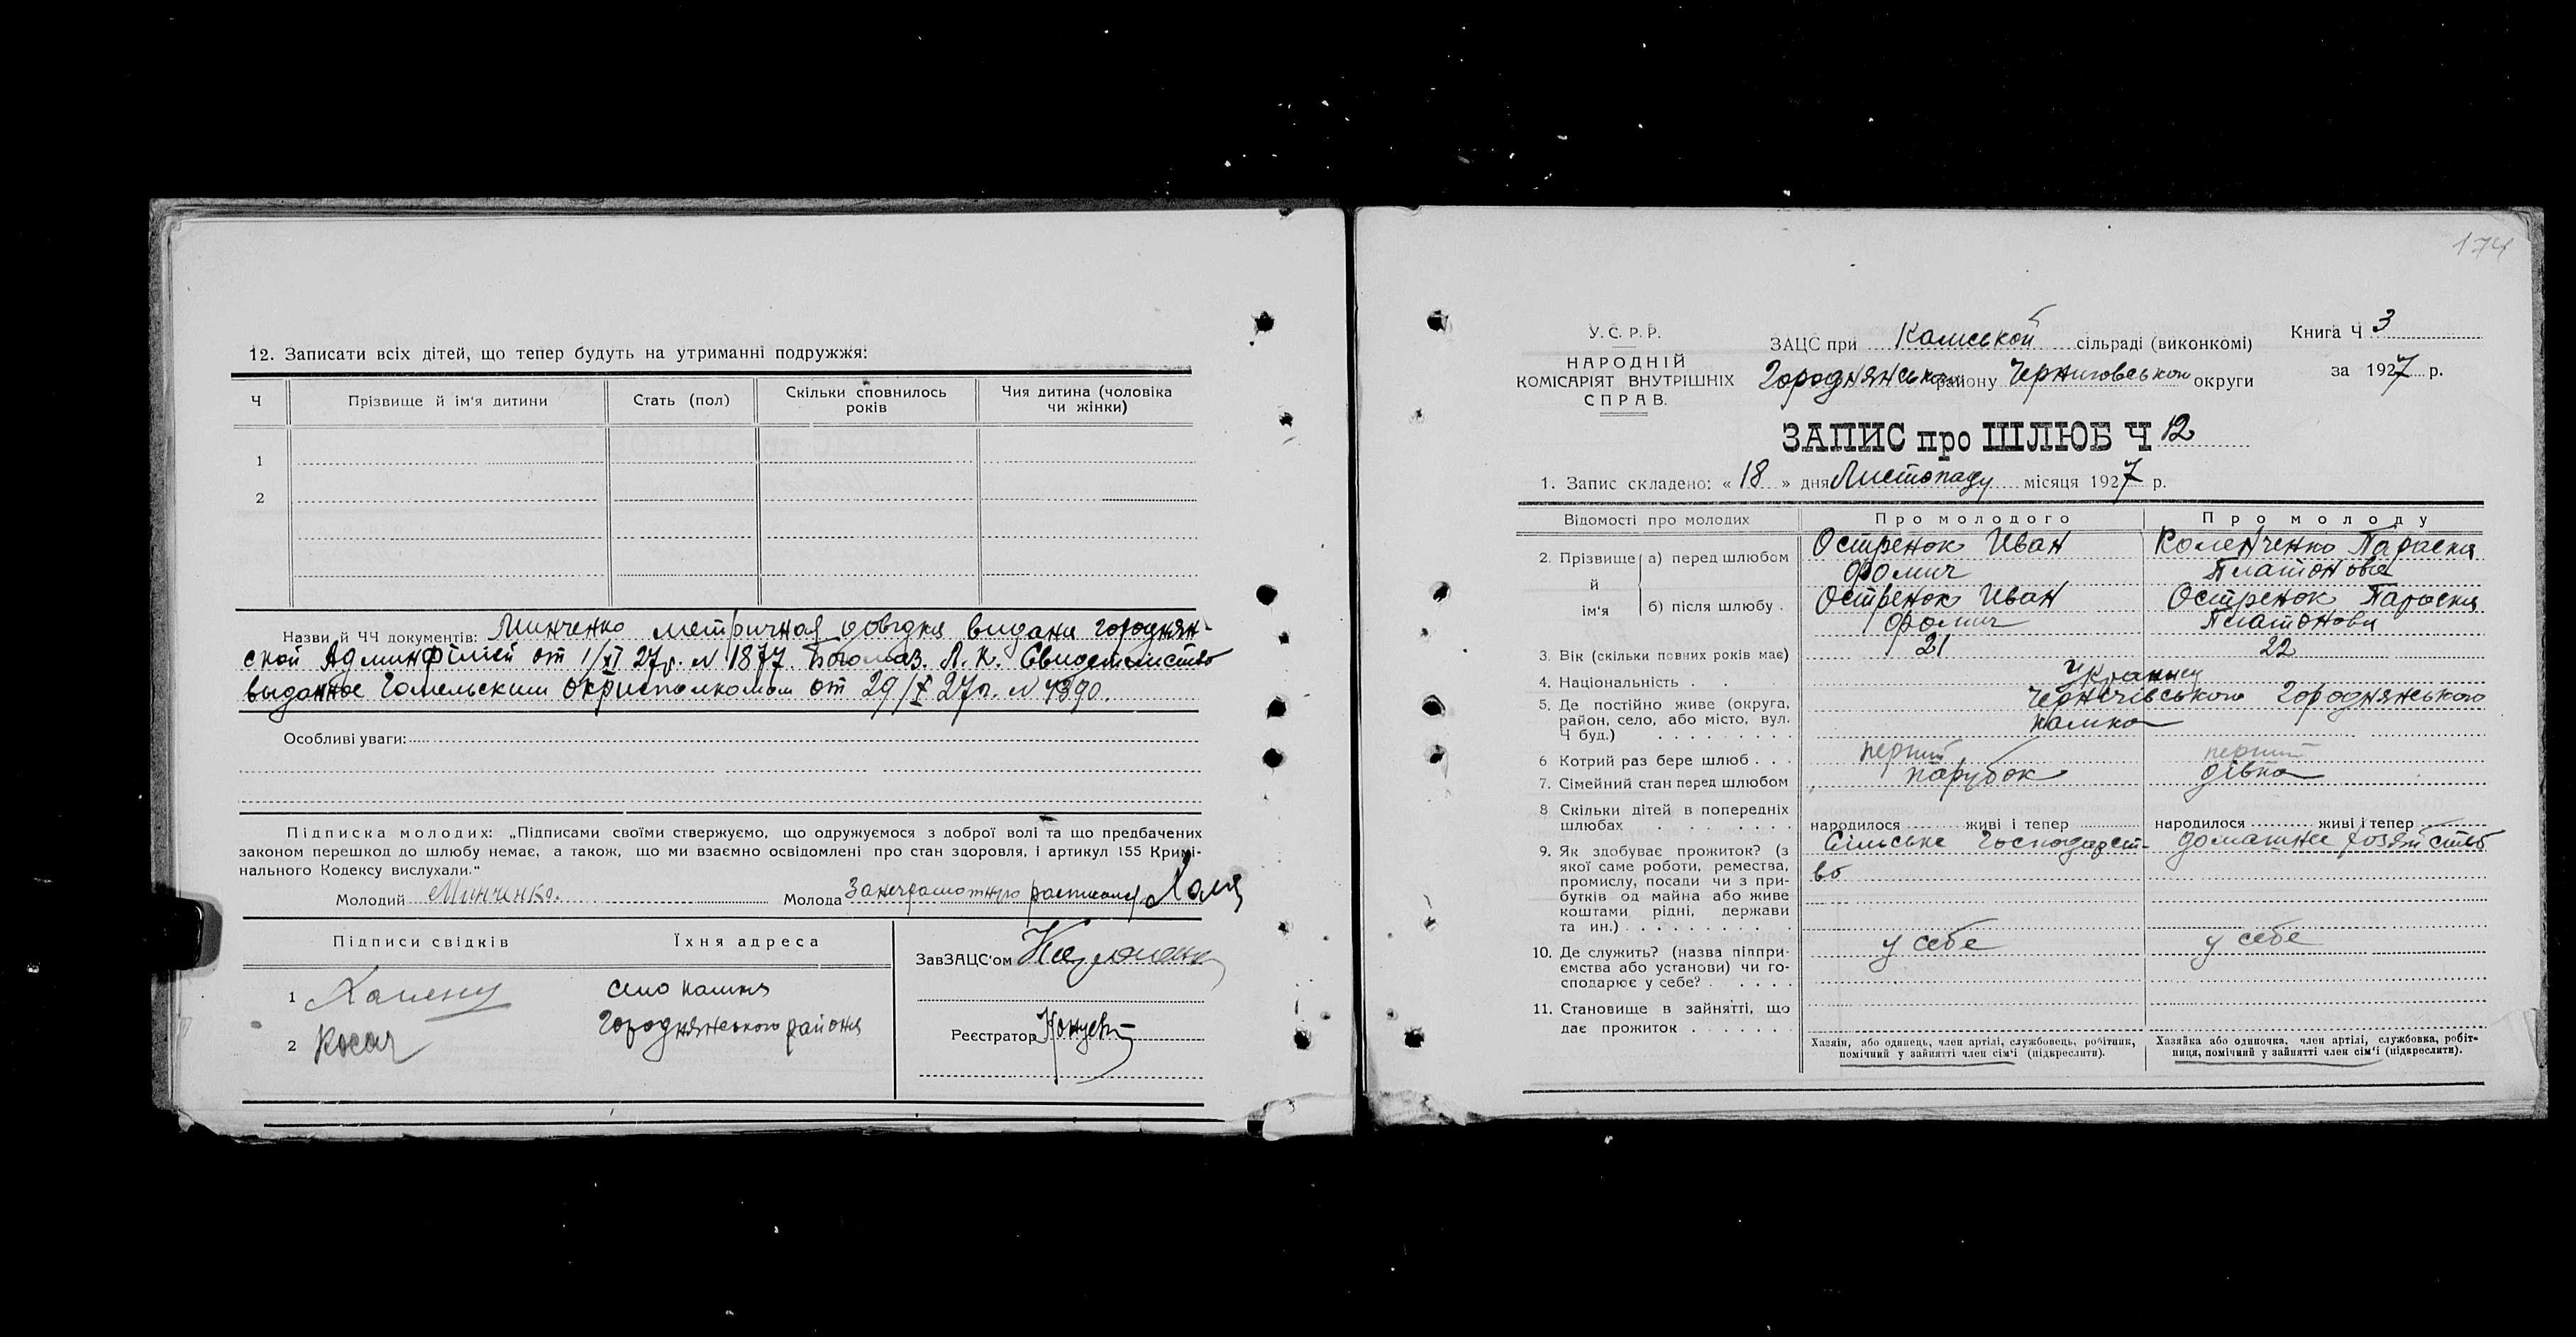 12. Записати всіх дітей, що тепер будуть на утриманні подружжя:
Ч Прізвище й ім'я дитини Стать (пол) Скільки сповнилось років Чия дитина (чоловіка чи жінки)
1
2
Назви й ЧЧ документів: Минченко метричная довідка видана городнян-
ской Админфілієй от 1/XI 27р. N 1877. Богомаз. Л. К. Свидетельство
выданное Гомельским окрисполкомом от 29/X 27г. N 4390.
Особливі уваги:
Підписка молодих: „Підписами своїми стверджуємо, що одружуємося з доброї волі та що предбачених
законом перешкод до шлюбу немає, а також, що ми взаємно освідомлені про стан здоровля, і артикул 155 Кримі-
нального Кодексу вислухали."
Молодий Минченко. Молода За неграмотную расписался
Підписи свідків Їхня адреса
ЗавЗАЦС'ом
1 село камка
Городнянського района
2 Косач
Реєстратор
174
У.С.Р.Р.
НАРОДНІЙ
КОМІСАРІЯТ ВНУТРІШНІХ
СПРАВ.
ЗАЦС при Камськой сільраді (виконкомі)
Городнянського району Черниговського округи
Книга Ч 3
за 1927 р.
ЗАПИС про ШЛЮБ Ч 12
1. Запис складено: « 18 » дня Листопаду місяця 1927 р.
Відомості про молодих Про молодого Про молоду
2. Прізвище й ім'я а) перед шлюбом Остренок Иван Фомич Коленченко Параска Платонова
б) після шлюбу Остренок Иван Фомич Остренок Параска Платонова
3. Вік (скільки повних років має) 21 22
4. Національність Украинц
5. Де постійно живе (округа, Чернігівського Городнянського
район, село, або місто, вул. камка
Ч буд.)
6 Котрий раз бере шлюб перший перший
7. Сімейний стан перед шлюбом парубок дівка
8 Скільки дітей в попередніх
шлюбах народилося живі і тепер народилося живі і тепер
9. Як здобуває прожиток? (з Сільське Господарст- домашнє хозяйство
якої саме роботи, ремества, во
промислу, посади чи з при-
бутків од майна або живе
коштами рідні, держави
та ин.)
10. Де служить? (назва підпри- у себе у себе
ємства або установи) чи го-
сподарює у себе?
11. Становище в зайнятті, що
дає прожиток
Хазяїн, або одинець, член артілі, службовець, робітник,
помічний у зайнятті член сім'ї (підкреслити).
Хазяйка або одиночка, член артілі, службовка, робіт-
ниця, помічний у зайнятті член сім'ї (підкреслити).